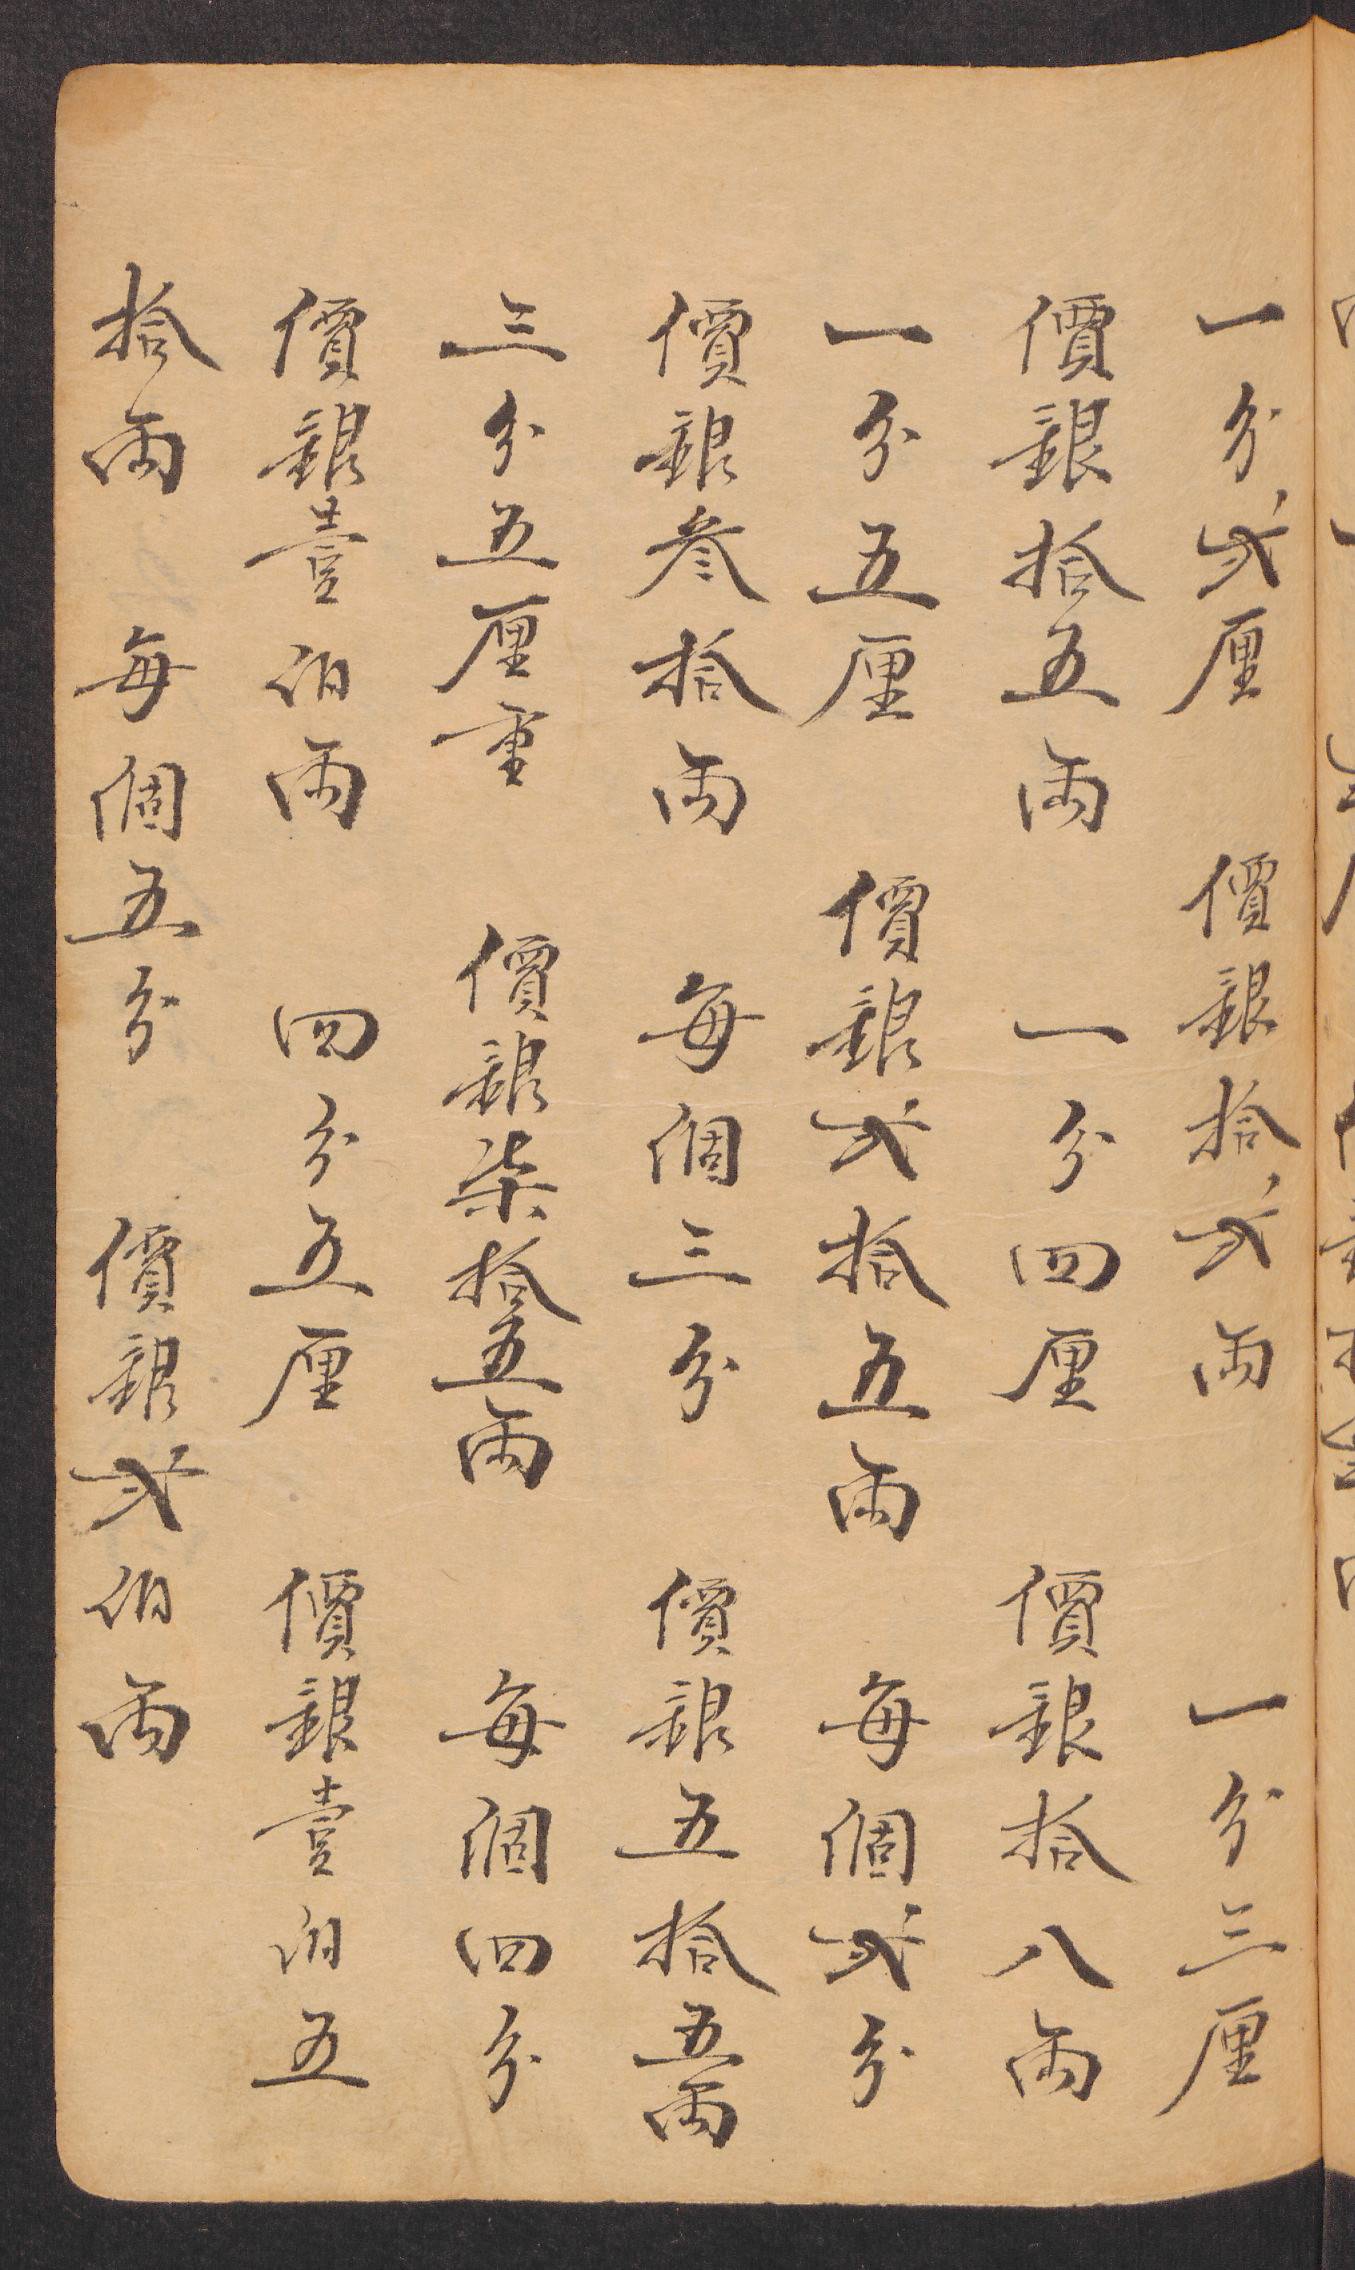 一分弍厘　價銀拾弍兩　一分三厘
價銀拾五兩　一分四厘　價銀拾八兩
一分五厘　價銀弍拾五兩　每個弍分
價銀叁拾兩　每個三分　價銀五拾五兩
三分五厘重　價銀柒拾五兩　每個四分
價銀壹佰兩　四分五厘　價銀壹佰五
拾兩　每個五分　價銀弍佰兩